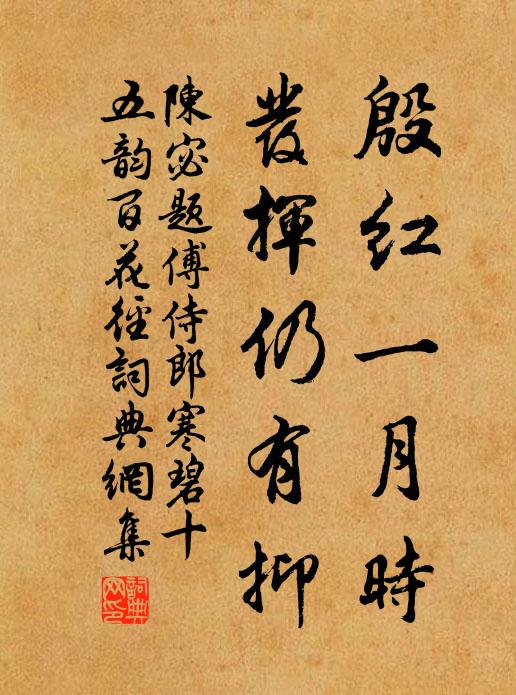 殷紅一月時
發揮仍有抑
陳宓題傅侍郎寒碧十
五韵百花徑詞典網集
詞典網印